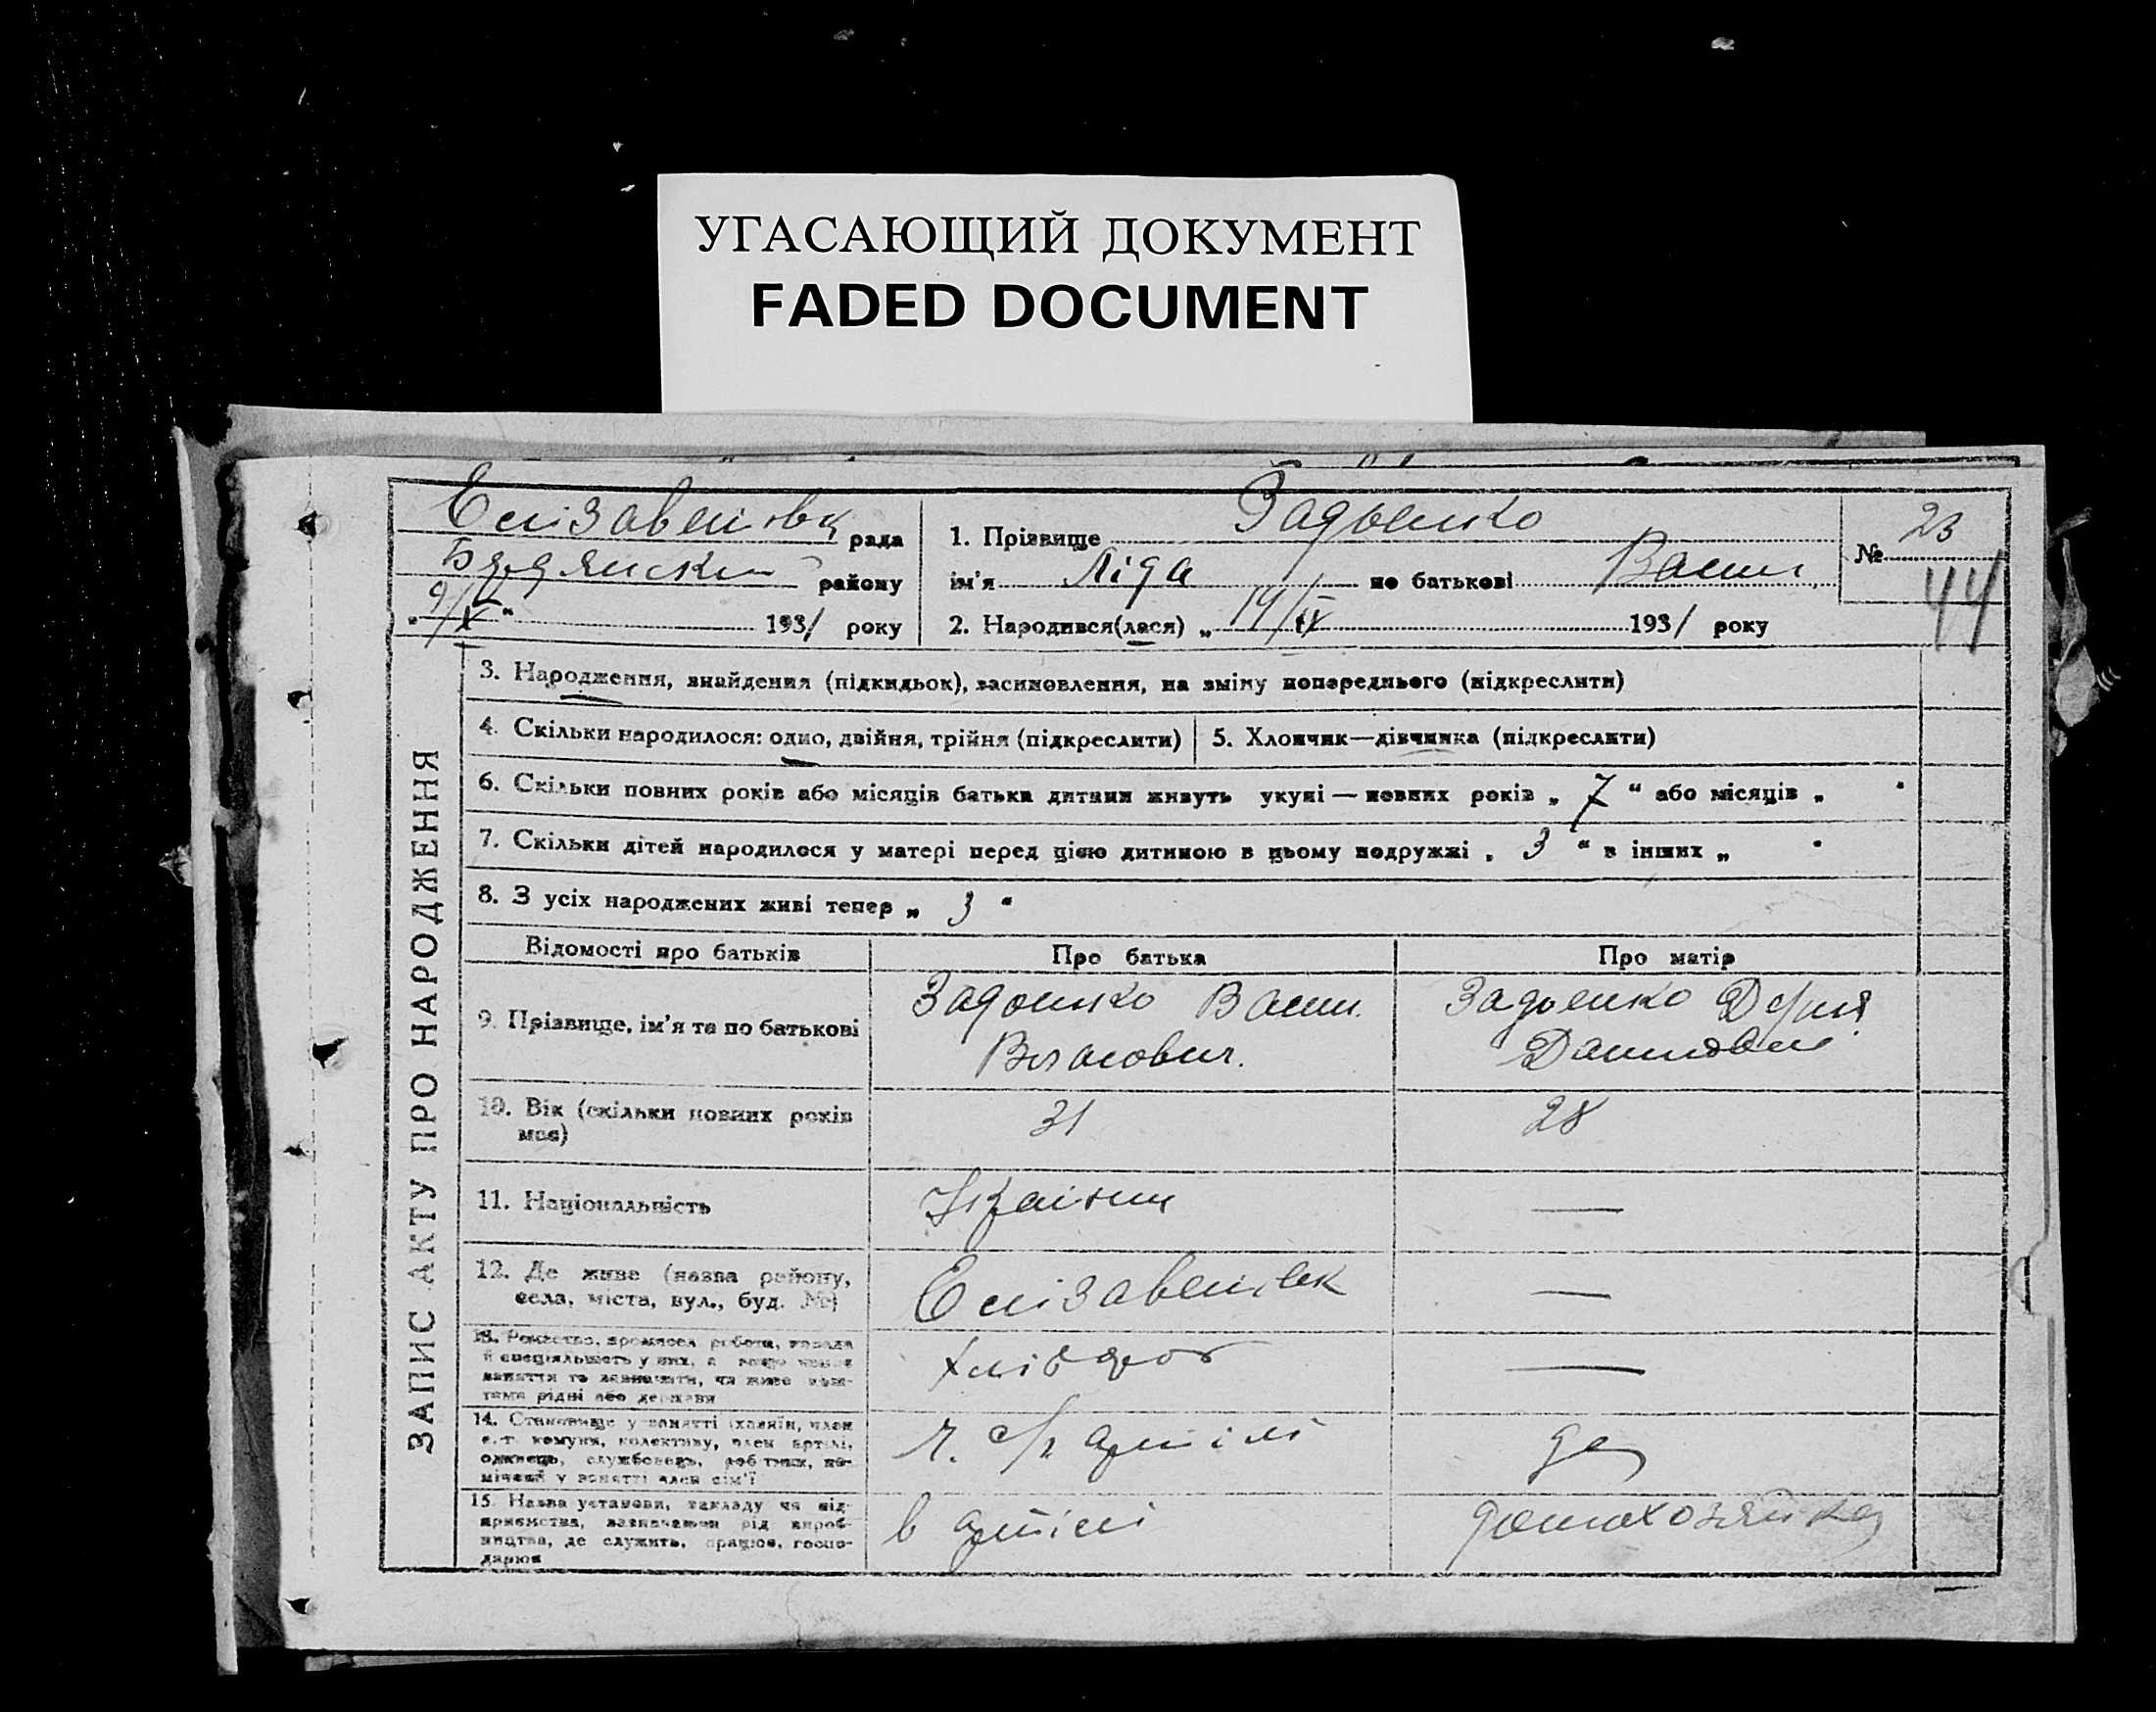 УГАСАЮЩИЙ ДОКУМЕНТ
FADED DOCUMENT
Єлізаветівк рада
Бердянськ району
„ 9/X “ 1931 року
1. Прізвище Задоенко
ім'я Ліда по батькові Васил.
2. Народився(лася) „ 19/IX 1931 року
№ 23
44
ЗАПИС АКТУ ПРО НАРОДЖЕННЯ
3. Народження, знайдення (підкидьок), засиновлення, на зміну попереднього (підкреслити)
4. Скільки народилося: одно, двійня, трійня (підкреслити)
5. Хлопчик—дівчинка (підкреслити)
6. Скільки повних років або місяців батьки дитини живуть укупі — повних років „ 7 “ або місяців „ “
7. Скільки дітей народилося у матері перед цією дитиною в цьому подружжі „ 3 “ в інших „ “
8. З усіх народжених живі тепер „ 3 “
Відомості про батьків
Про батька
Про матір
9. Прізвище, ім'я та по батькові
Задоенко Васил.
Власович.
Задоенко
10. Вік (скільки повних років
має)
31
28
11. Національність
Українц
—
12. Де живе (назва району,
села, міста, вул., буд. №)
Єлізаветівк
—
13. Ремество, промисел, робота, посада
й спеціяльність у них, а якщо немає
заняття то зазначити, чи живе кош-
тами рідні або держави
хлібороб
—
14. Становище у занятті (хазяїн, член
с.-г. комуни, колективу, член артілі,
одинець, службовець, робітник, по-
мічний у занятті член сім'ї
ч. с/г артілі
15. Назва установи, закладу чи під-
приємства, зазначаючи рід вироб-
ництва, де служить, працює, госпо-
дарює
в артілі
домохозяйка